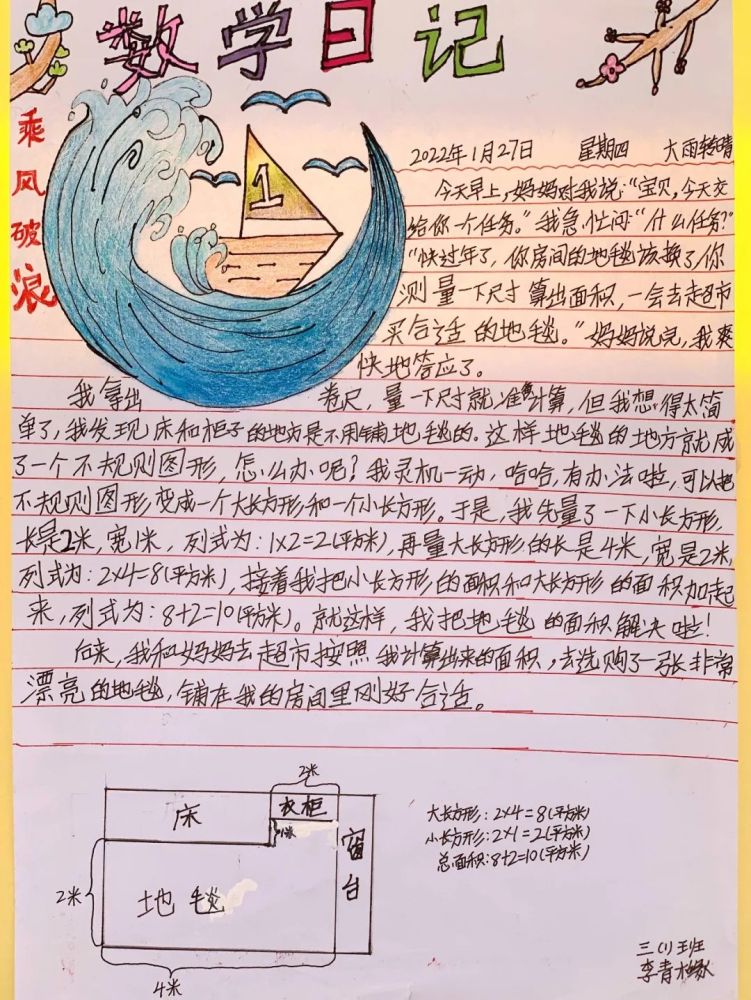 数学日记
乘风破浪
1
2022年1月27日 星期四 大雨转晴
今天早上，妈妈对我说：“宝贝，今天交
给你一个任务。”我急忙问：“什么任务？”
“快过年了，你房间的地毯该换了，你
测量一下尺寸算出面积，一会去超市
买合适的地毯。”妈妈说完，我爽
快地答应了。
我拿出卷尺，量一下尺寸就准备计算，但我想得太简
单了，我发现床和柜子的地方是不用铺地毯的。这样地毯的地方就成
了一个不规则图形，怎么办呢？我灵机一动，哈哈，有办法啦，可以把
不规则图形变成一个大长方形和一个小长方形。于是，我先量了一下小长方形，
长是2米，宽1米，列式为：1×2=2(平方米)，再量大长方形的长是4米，宽是2米，
列式为：2×4=8(平方米)，接着我把小长方形的面积和大长方形的面积加起
来，列式为：8+2=10(平方米)。就这样，我把地毯的面积解决啦！
后来，我和妈妈去超市按照我计算出来的面积，去选购了一张非常
漂亮的地毯，铺在我的房间里刚好合适。
2米
床
衣柜
1米
窗台
2米
地毯
4米
大长方形：2×4=8(平方米)
小长方形：2×1=2(平方米)
总面积：8+2=10(平方米)
三(1)班
李青